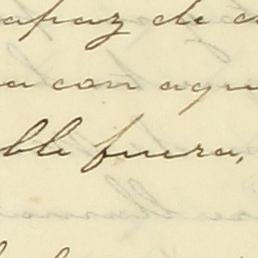 apaz de
a con aqu
ble fuera,